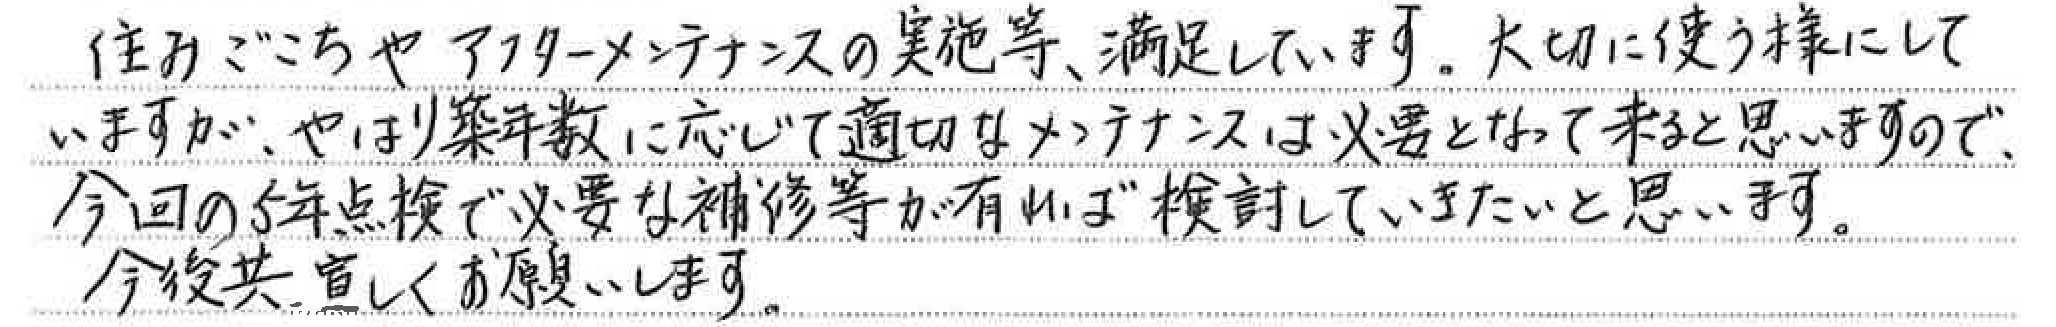 住みごこちやアフターメンテナンスの実施等、満足しています。大切に使う様にして
いますが、やはり築年数に応じて適切なメンテナンスは必要となって来ると思いますので、
今回の5年点検で必要な補修等が有れば検討していきたいと思います。
今後共宜しくお願いします。